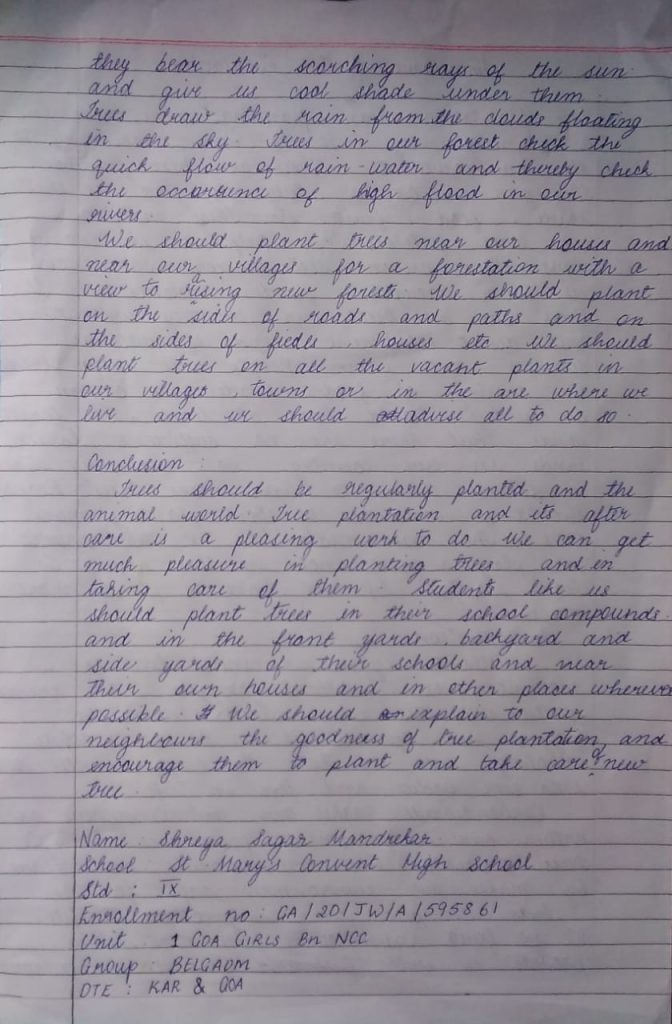 they bear the scorching rays of the sun
and give us cool shade under them.
Trees draw the rain from the clouds floating
in the sky. Trees in our forest check the
quick flow of rain-water and thereby check
the occurrence of high flood in our
rivers.
We should plant trees near our houses and
near our villages for a forestation with a
view to rising new forests. We should plant
on the sides of roads and paths and on
the sides of fiedes, houses etc. We should
plant trees on all the vacant plants in
our villages, towns or in the are where we
live and we should advise all to do so.
Conclusion :
Trees should be regularly planted and the
animal world. Tree plantation and its after
care is a pleasing work to do. We can get
much pleasure in planting trees and in
taking care of them. Students like us
should plant trees in their school compounds
and in the front yards, backyard and
side yards of their schools and near
their own houses and in other places wherever
possible. We should explain to our
neighbours the goodness of tree plantation, and
encourage them to plant and take care of new
tree.
Name : Shreya Sagar Mandrekar
School St Mary's Convent High School
Std : IX
Enrollment no : GA/20/JW/A/595861
Unit 1 GOA GIRLS Bn NCC
Group : BELGAOM
DTE : KAR & GOA